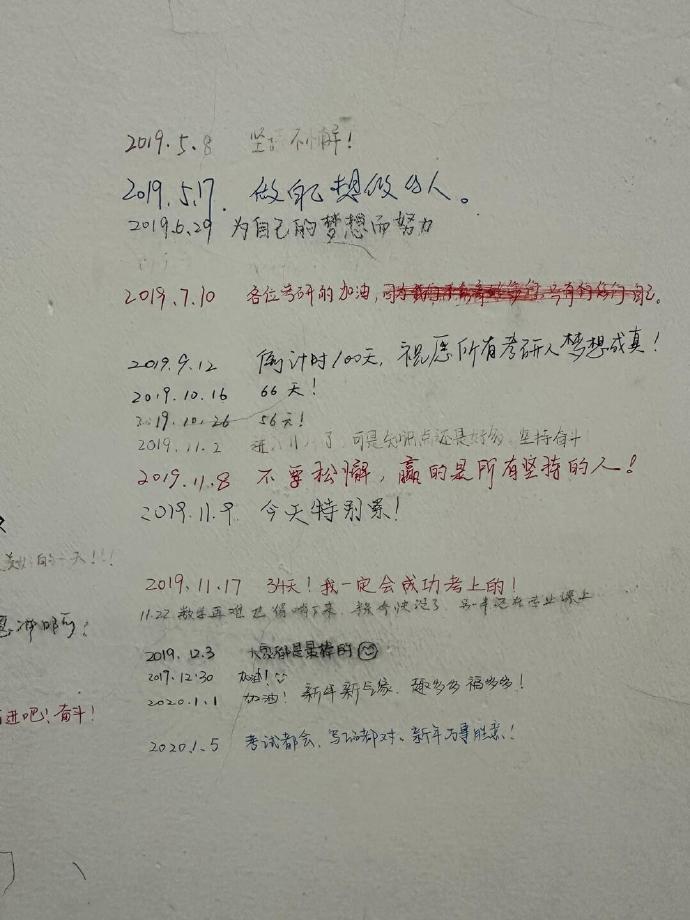 2019.5.8 坚 不懈!
2019.5.17. 做自己想做的人。
2019.6.29 为自己的梦想而努力
2019.7.10 各位考研的加油,
2019.9.12 倒计时100天, 祝愿所有考研人梦想成真!
2019.10.16 66天!
2019.10.26 56天!
2019.11.2 了, 可是知识点还是好多 坚持奋斗
2019.11.8 不要松懈, 赢的是所有坚持的人!
2019.11.9 今天特别累!
的一天!!!
2019.11.17 34天! 我一定会成功考上的!
11.22 数学再难也得啃下来
2019.12.3 大家都是最棒的
2019.12.30 加油!
2020.1.1 加油! 新年新气象. 趣多多 福多多!
进吧! 奋斗!
2020.1.5 考试都会、写的都对、新年万事胜意!